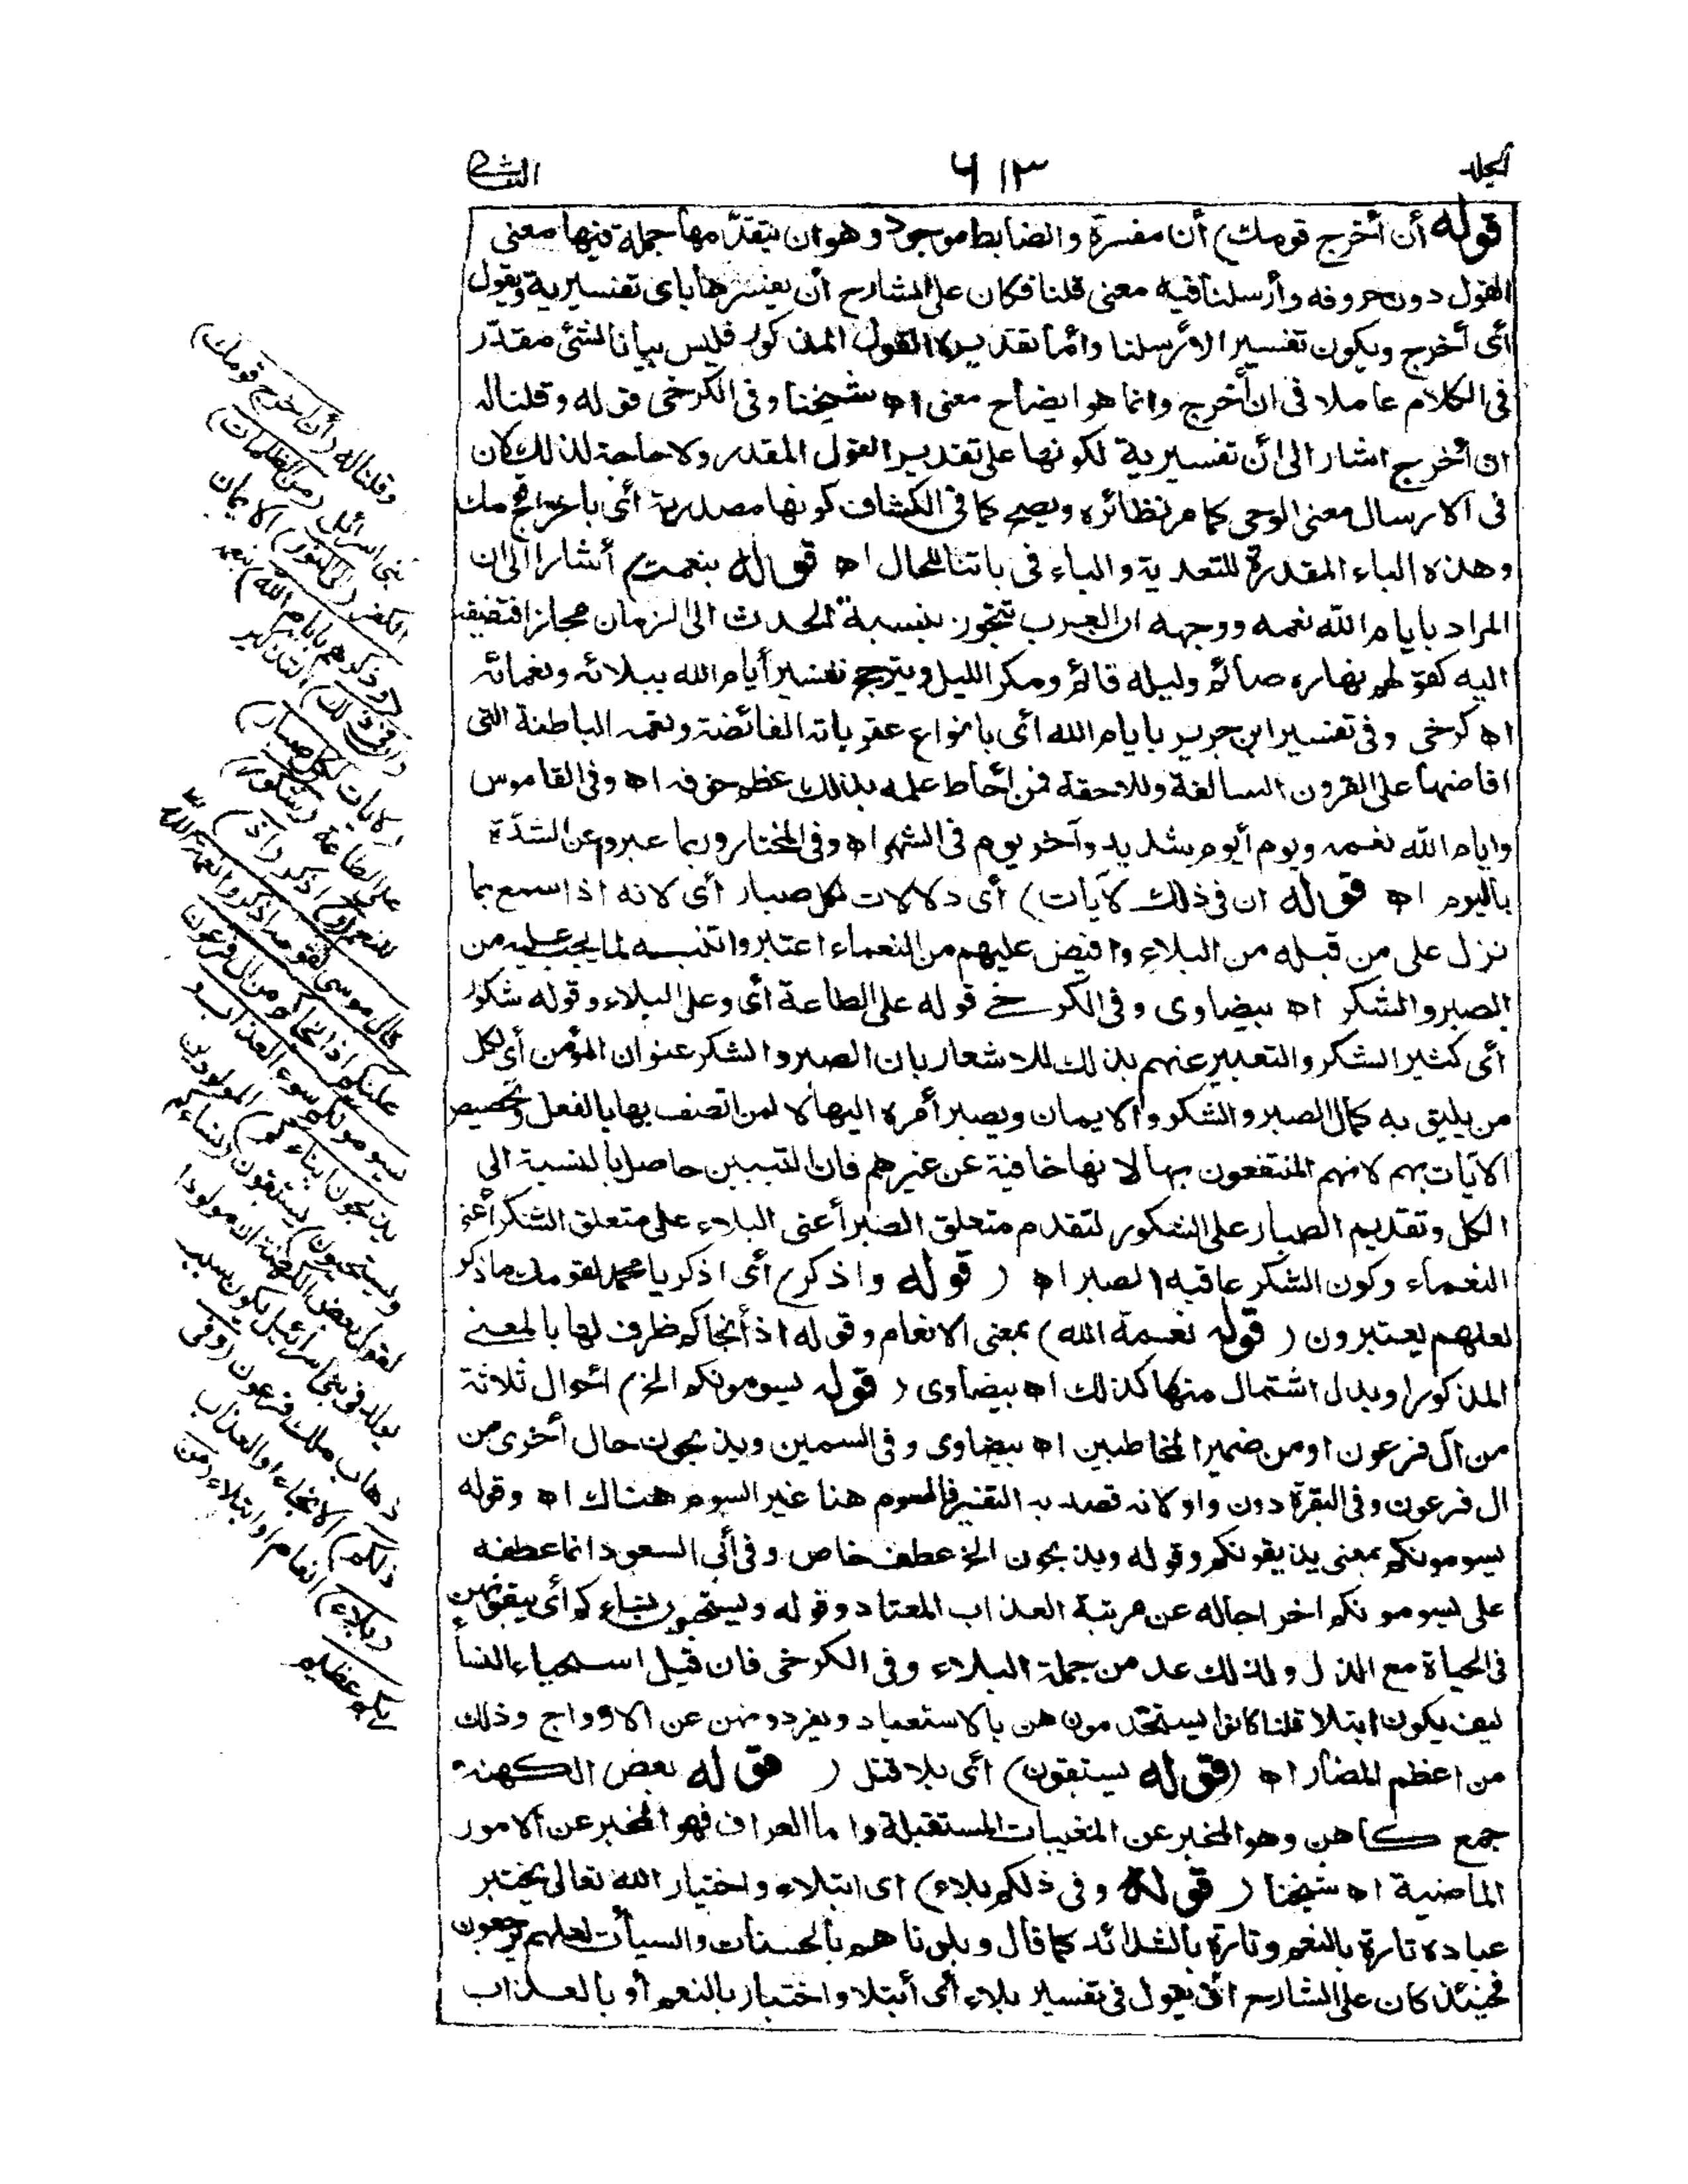 المجلد
٦١٣
الثانى
قوله أن أخرج قومك) أن مفسرة والضابط موجود وهو ان يتقدّمها جملة فيها معنى
القول دون حروفه وأرسلنا فيه معنى قلنا فكان على الشارح أن يفسرها باى تفسيرية ويقول
أى أخرج ويكون تفسيرا لأرسلنا وأما تقديره القول المذكور فليس بيانا لشئ مقدّر
فى الكلام عاملا فى ان أخرج وانما هو ايضاح معنى اه شيخنا وفى الكرخى قوله وقلنا له
ان أخرج اشار الى أن تفسيرية لكونها على تقدير القول المقدر ولا حاجة لذلك لان
فى الارسال معنى الوحى كما مر نظائره ويصح كما فى الكشاف كونها مصدرية أى باخراج قومك
وهذه الباء المقدرة للتعدية والباء فى باتنا للحال اه قوله بنعمه) أشار الى ان
المراد بايام الله نعمه ووجهه ان العرب تتجوز بنسبة الحدث الى الزمان مجازا فتضيفه
اليه كقولهم نهاره صائم وليله قائم ومكر الليل ويترجح تفسير أيام الله ببلائه ونعمائه
اه كرخى وفى تفسير ابن جرير بايام الله أى بانواع عقوباته الفائضة ونعمه الباطنة التى
افاضها على القرون السالفة وللاحقة فمن أحاط علمه بذلك عظم خوفه اه وفى القاموس
وايام الله نعمه ويوم أيوم شديد وآخر يوم فى الشهر اه وفى المختار وربما عبروا عن الشدّة
باليوم اه قوله ان فى ذلك لآيات) أى دلالات لكل صبار أى لانه اذا سمع بما
نزل على من قبله من البلاء وافيض عليهم من النعماء اعتبر وانتبه لما يجب عليه من
الصبر والشكر اه بيضاوى وفى الكرخى قوله على الطاعة أى وعلى البلاء وقوله شكور
أى كثير الشكر والتعبير عنهم بذلك للاشعار بان الصبر والشكر عنوان المؤمن أى لكل
من يليق به كمال الصبر والشكر والايمان ويصير أمره اليها لا لمن اتصف بها بالفعل وتخصيص
الآيات بهم لانهم المنتفعون بها لا نها خافية عن غيرهم فان التبيين حاصل بالنسبة الى
الكل وتقديم الصبار على الشكور لتقدم متعلق الصبر أعنى البلاء على متعلق الشكر أعنى
النعماء وكون الشكر عاقبة الصبر اه (قوله واذكر) أى اذكر يا محمد لقومك ما ذكر
لعلهم يعتبرون (قوله نعمة الله) بمعنى الانعام وقوله اذ أنجاكم ظرف لها بالمعنى
المذكور او بدل اشتمال منها كذلك اه بيضاوى (قوله يسومونكم الخ) احوال ثلاثة
من آل فرعون او من ضمير المخاطبين اه بيضاوى وفى السمين ويذبحون حال أخرى من
ال فرعون وفى البقرة دون واو لانه قصد به التفسير فالسوم هنا غير السوم هناك اه وقوله
يسومونكم بمعنى يذيقونكم وقوله ويذبحون الخ عطف خاص وفى أبى السعود انما عطفه
على يسومونكم اخراجا له عن مرتبة العذاب المعتاد وقوله ويستحيون نساءكم أى يبقونهن
فى الحياة مع الذل ولذلك عد من جملة البلاء وفى الكرخى فان قيل استحياء النسأ
كيف يكون ابتلا قلنا كانوا يستخدمونهن بالاستعباد ويفردونهن عن الازواج وذلك
من اعظم المضار اه (قوله يستبقون) أى بلا قتل (قوله بعض الكهنة
جمع كاهن وهو المخبر عن المغيبات المستقبلة واما العراف فهو المخبر عن الامور
الماضية اه شيخنا (قوله وفى ذلكم بلاء) اى ابتلاء واختبار الله تعالى يختبر
عباده تارة بالنعم وتارة بالشدائد كما قال وبلوناهم بالحسنات والسيآت لعلهم يرجعون
فحينئذ كان على الشارح أن يقول فى تفسير بلاء أى أبتلا واختبار بالنعم أو بالعذاب
وقلنا له (أن أخرج قومك)
بنى اسرائيل (من الظلمات)
الكفر (الى النور) الايمان
(وذكرهم بايام الله) بنعمه
(ان فى ذلك) التذكير
(لآيات لكل صبار)
على الطاعة (شكور)
للنعم (و) اذكر (اذ
قال موسى لقومه اذكروا نعمة الله
عليكم اذ انجاكم من آل فرعون
يسومونكم سوء العذاب و
يذبحون ابناءكم) المولودين
ويستحيون) يستبقون (نساءكم
لقول بعض الكهنة ان مولودا
يولد فى بنى اسرائيل يكون سبب
ذهاب ملك فرعون (وفى
ذلكم) الانجاء او العذاب
(بلاء) انعام او ابتلاء (من
ربكم عظيم